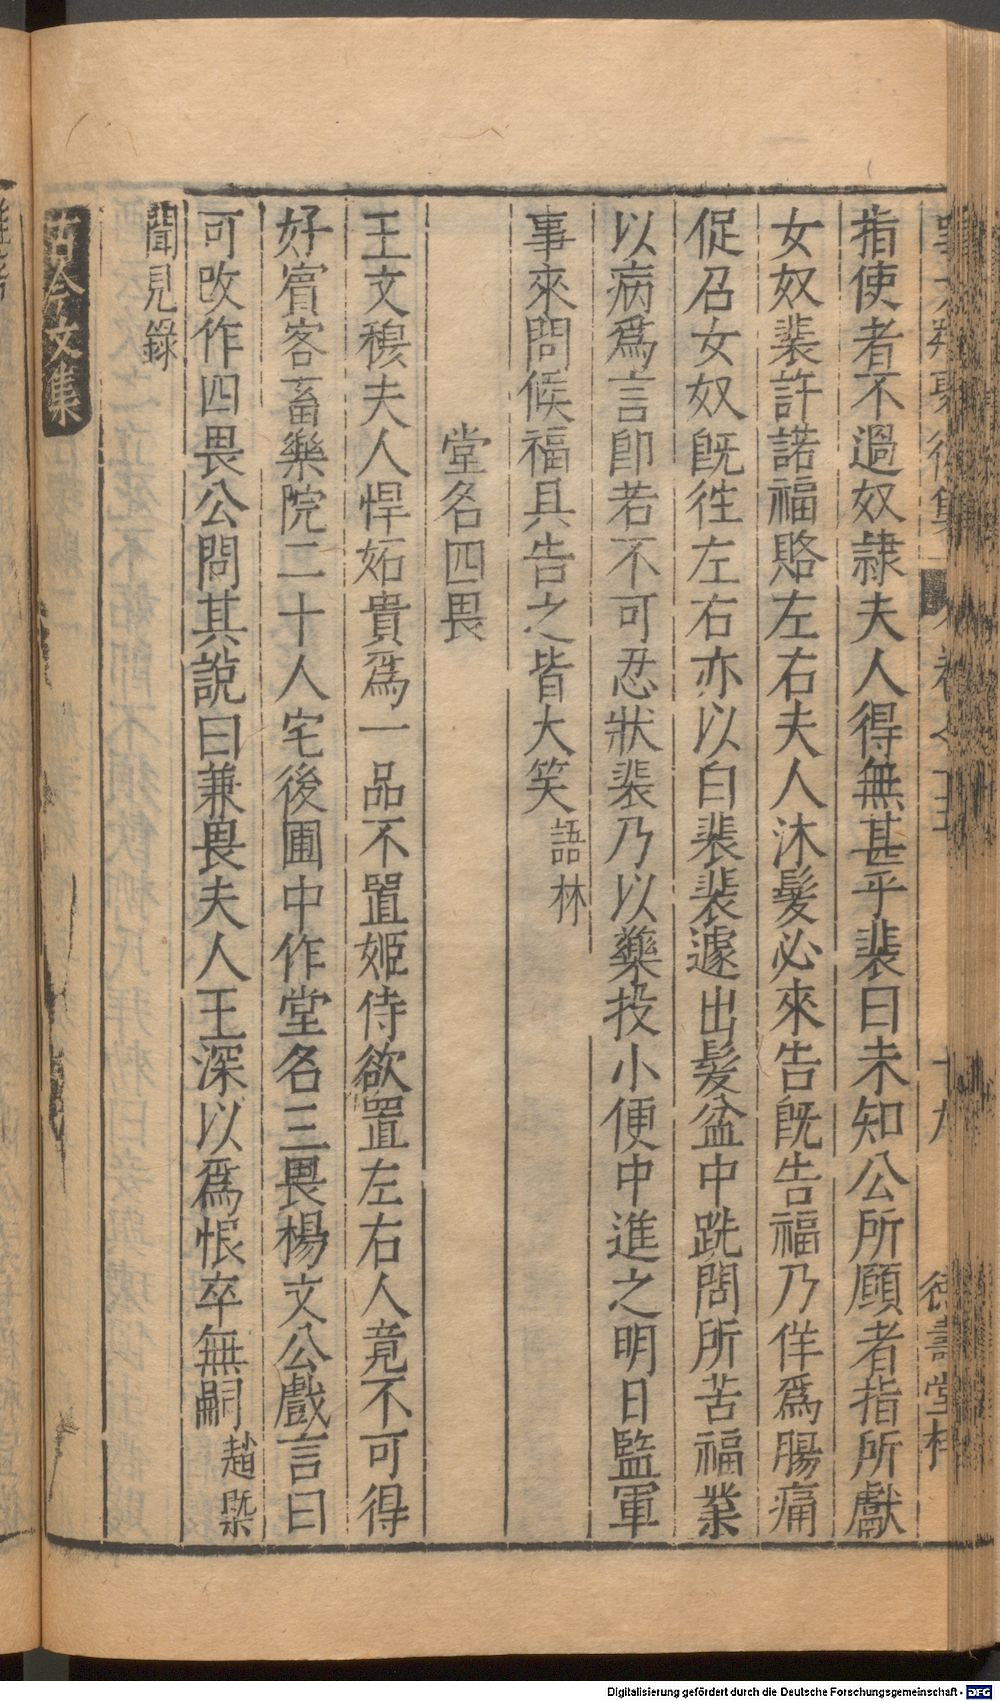 指使者不過奴隷夫人得無甚乎裴曰未知公所願者指所獻
女奴裴許諾福賂左右夫人沐髮必來告旣告福乃佯爲腸痛
促召女奴旣徃左右亦以白裴裴遽出髮盆中跣問所苦福業
以病爲言卽若不可忍狀裴乃以藥投小便中進之明日監軍
事來問候福具告之皆大笑語林
堂名四畏
王文穆夫人悍妬貴爲一品不置姬侍欲置左右人竟不可得
好賓客畜樂院二十人宅後圃中作堂名三畏楊文公戲言曰
可改作四畏公問其說曰兼畏夫人王深以爲恨卒無嗣趙槩
聞見錄
古今文集
Digitalisierung gefördert durch die Deutsche Forschungsgemeinschaft - DFG